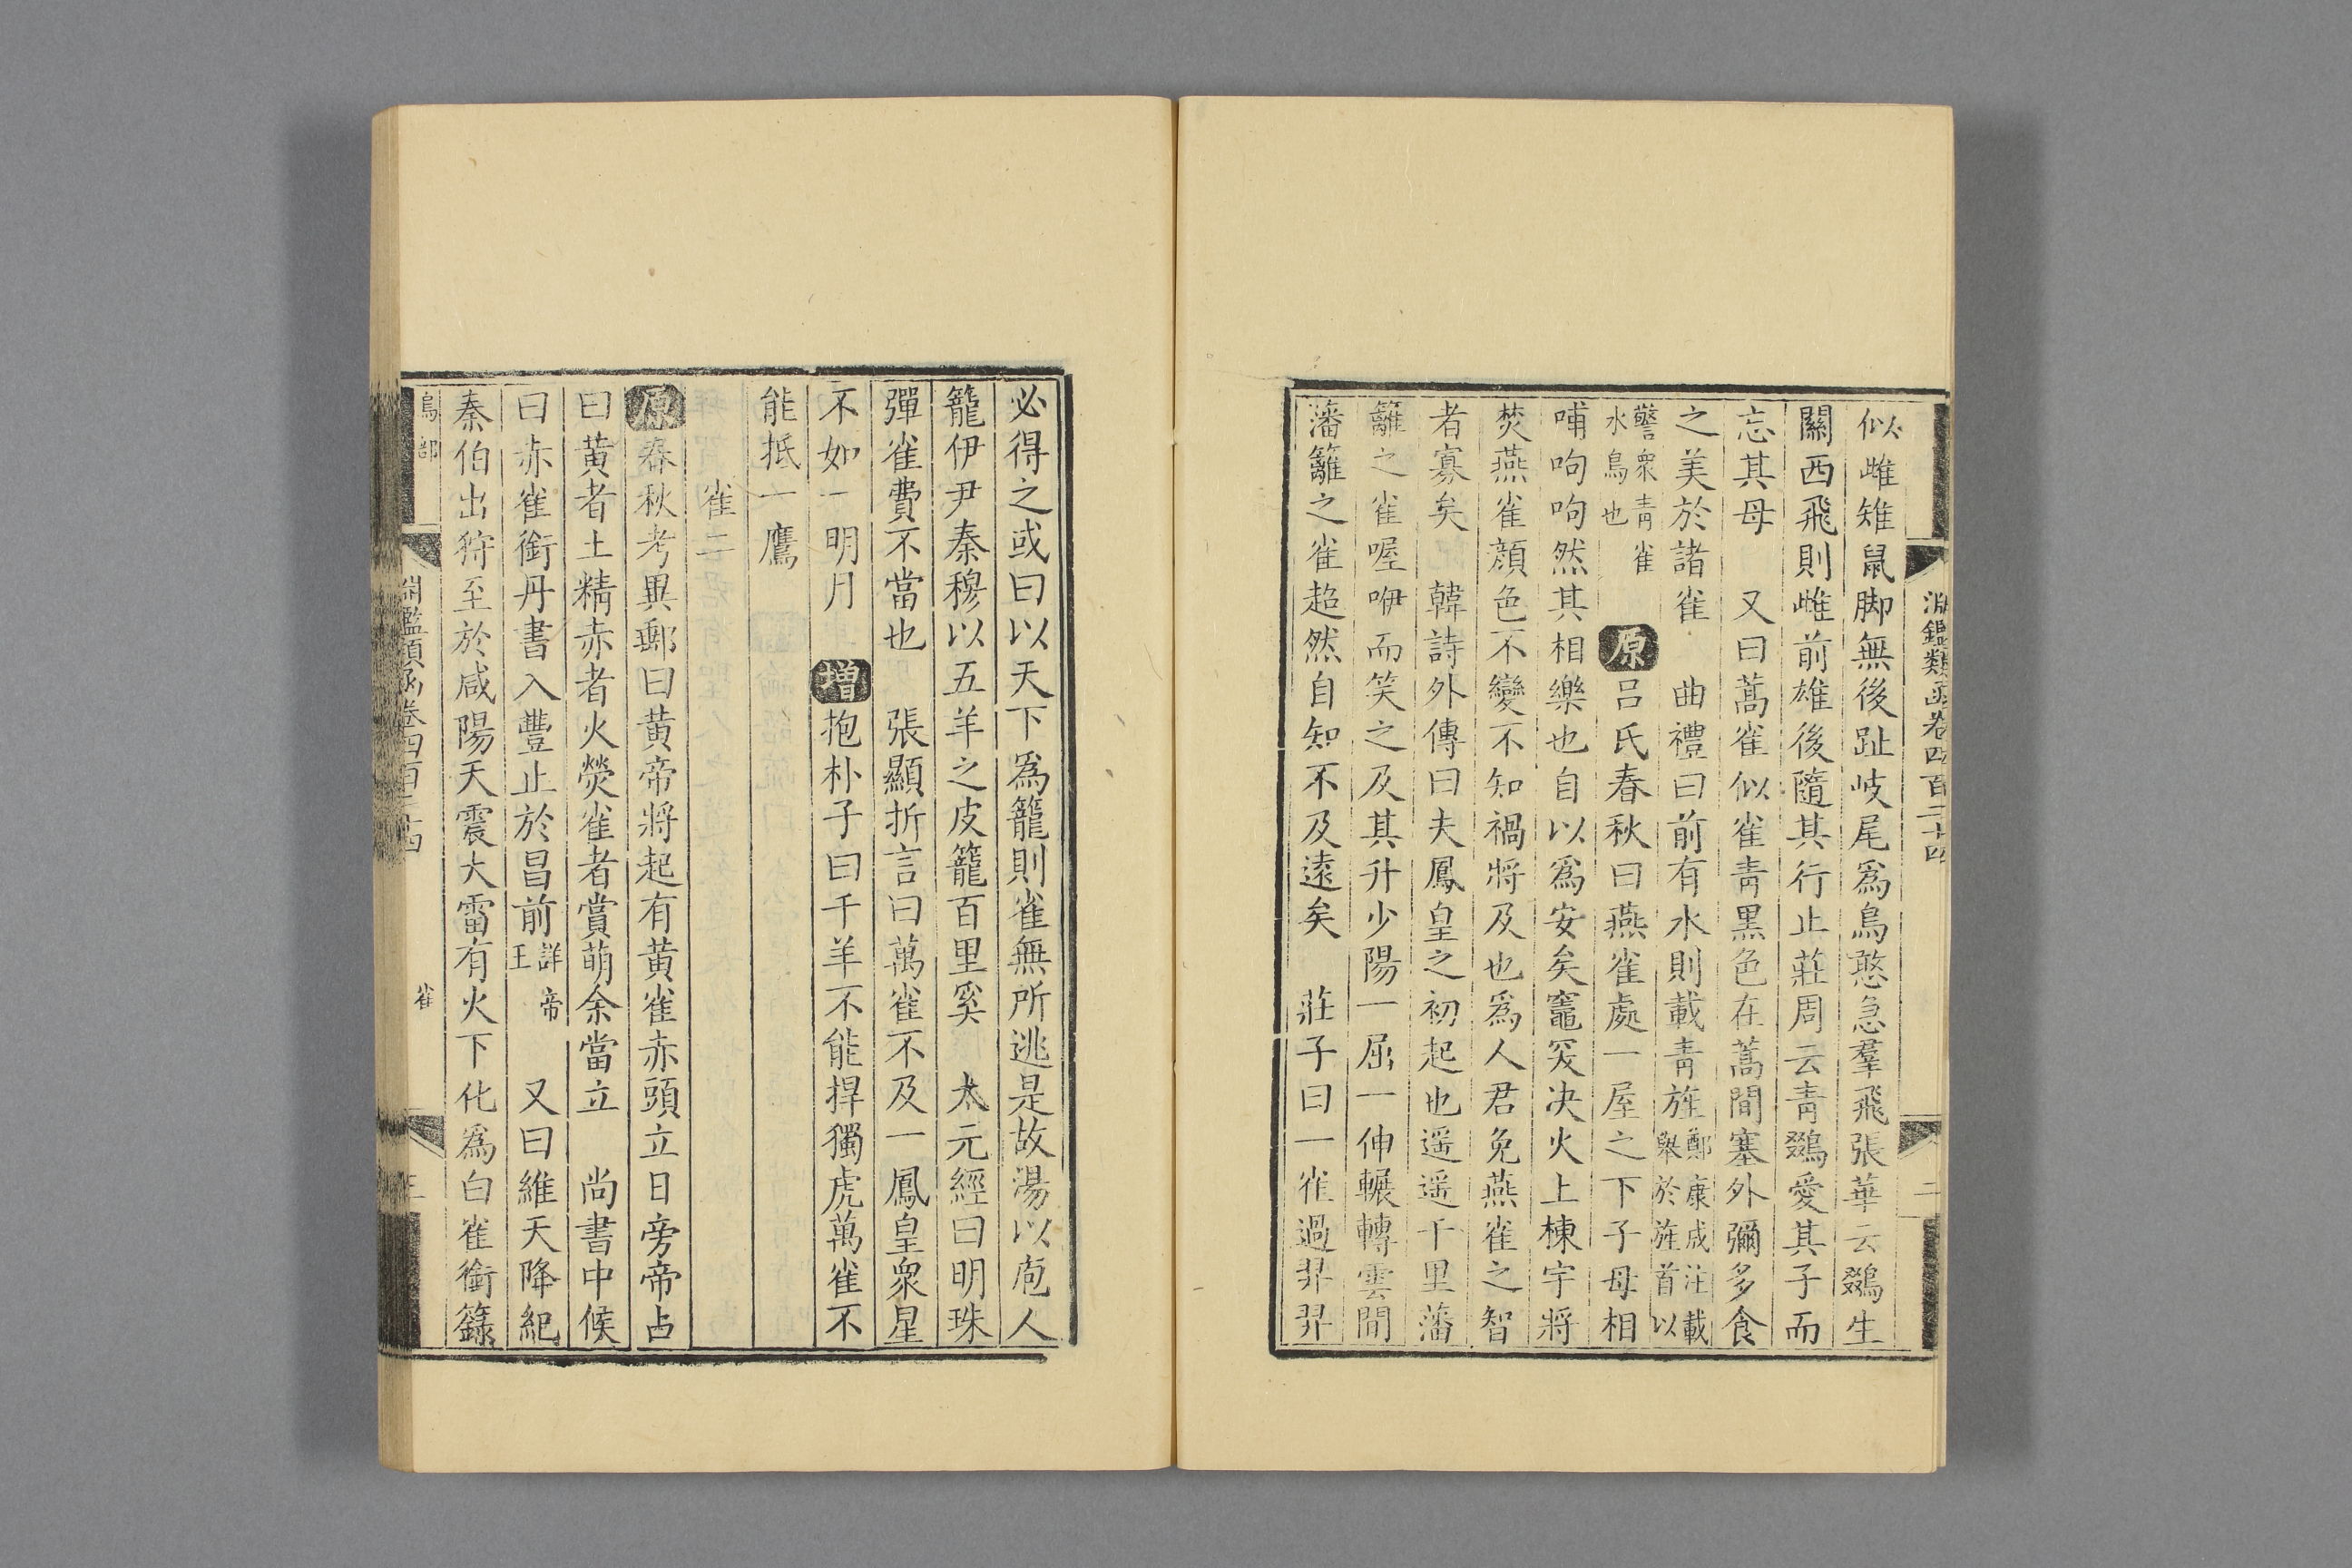 淵鑑類函卷四百二十四
二
似雌雉鼠脚無後趾岐尾爲鳥憨急羣飛張華云鵽生
關西飛則雌前雄後隨其行止莊周云青鵽愛其子而
忘其母 又曰蒿雀似雀青黑色在蒿間塞外彌多食
之美於諸雀 曲禮曰前有水則載青旌鄭康成注載
舉於旌首以
警衆青雀
水鳥也 原呂氏春秋曰燕雀處一屋之下子母相
哺呴呴然其相樂也自以爲安矣竈突決火上棟宇將
焚燕雀顔色不變不知禍將及也爲人君免燕雀之智
者寡矣 韓詩外傳曰夫鳳皇之初起也遥遥千里藩
籬之雀喔咿而笑之及其升少陽一屈一伸輾轉雲間
藩籬之雀超然自知不及遠矣 莊子曰一雀過羿羿
必得之或曰以天下爲籠則雀無所逃是故湯以庖人
籠伊尹秦穆以五羊之皮籠百里奚 太元經曰明珠
彈雀費不當也 張顯折言曰萬雀不及一鳳皇衆星
不如一明月 增抱朴子曰千羊不能捍獨虎萬雀不
能抵一鷹
雀二
原春秋考異郵曰黄帝將起有黄雀赤頭立日旁帝占
曰黄者土精赤者火熒雀者賞萌余當立 尚書中候
曰赤雀銜丹書入豐止於昌前詳帝
王 又曰維天降紀
秦伯出狩至於咸陽天震大雷有火下化爲白雀銜籙
鳥部
淵鑑類函卷四百二十四
雀
三